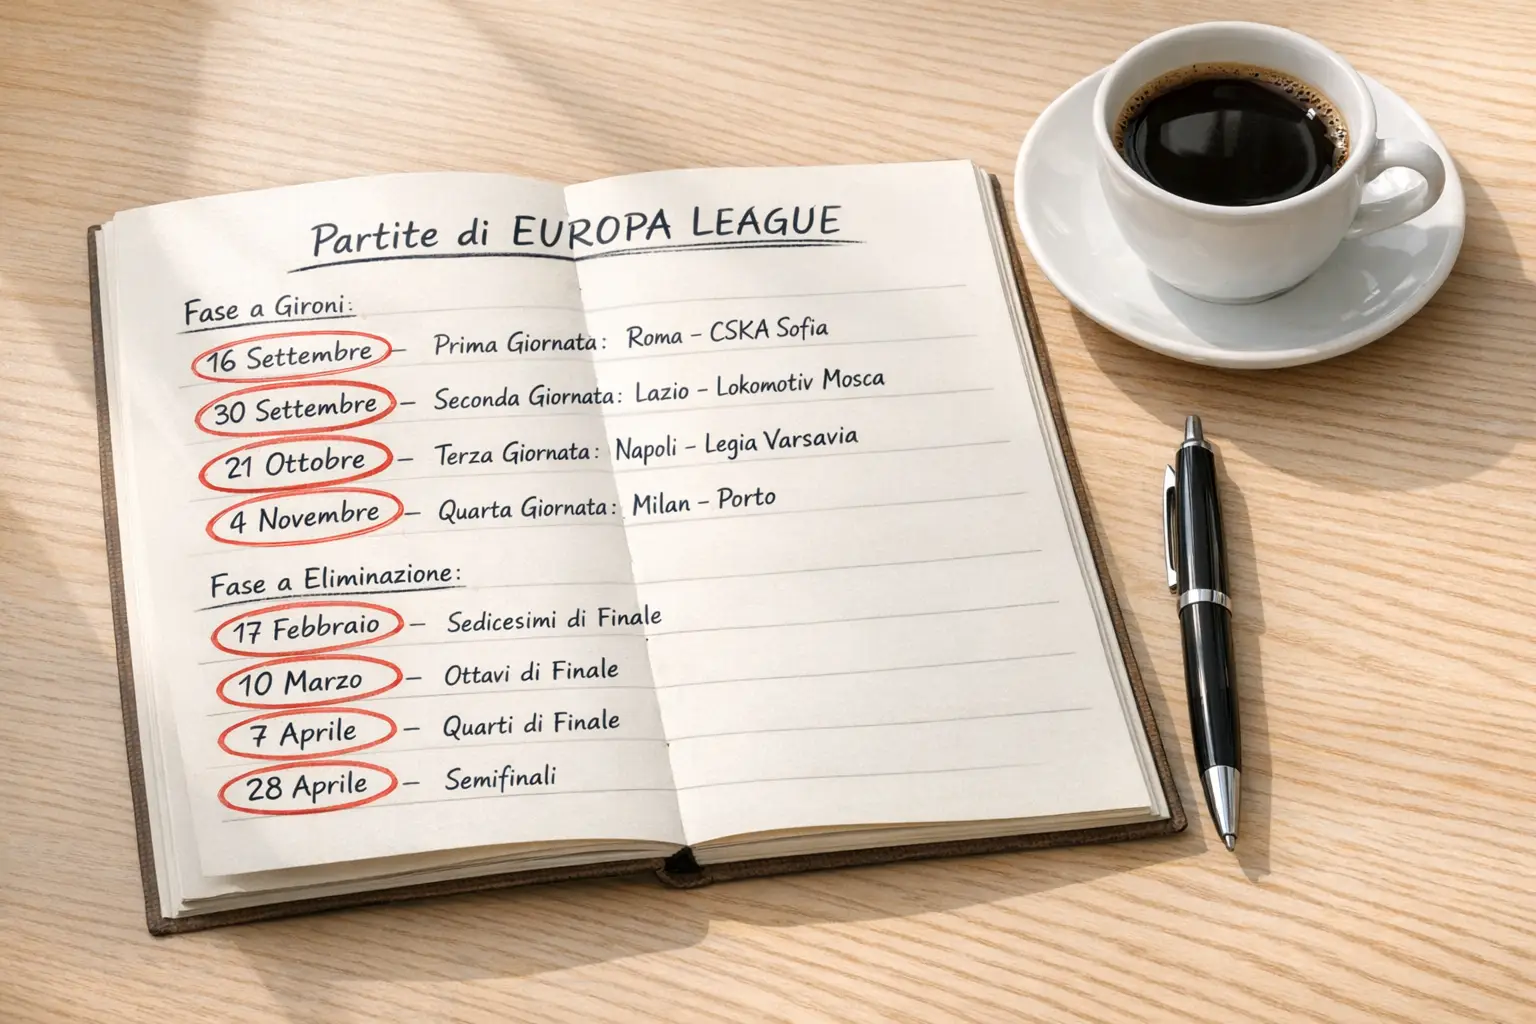 Partite di EUROPA LEAGUE
Fase a Gironi:
16 Settembre – Prima Giornata: Roma – CSKA Sofia
30 Settembre – Seconda Giornata: Lazio – Lokomotiv Mosca
21 Ottobre – Terza Giornata: Napoli – Legia Varsavia
4 Novembre – Quarta Giornata: Milan – Porto
Fase a Eliminazione:
17 Febbraio – Sedicesimi di Finale
10 Marzo – Ottavi di Finale
7 Aprile – Quarti di Finale
28 Aprile – Semifinali